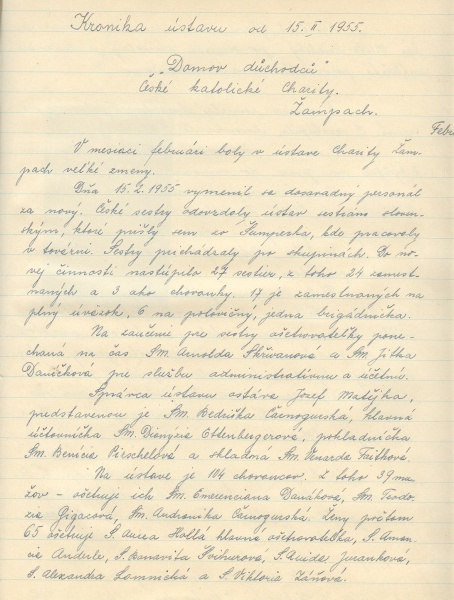 Kronika ústavu od 15. II. 1955.
"Domov důchodců"
České katolické Charity.
Žampach.
Febr
V mesiaci februári boly v ústave Charity Žam-
pach veľké zmeny.
Dňa 15.2.1955 vymenil sa dosavadný personál
za nový. České sestry odovzdaly ústav sestrám sloven-
ským, ktoré prišly sem zo Šumperska, kde pracovaly
v továrni. Sestry prichádzaly po skupinách. Do no-
vej činnosti nastúpilo 27 sestier, z toho 24 zamest-
naných a 3 ako chovanky. 17 je zamestnaných na
plný úväzok, 6 na polovičný, jedna brigádnička.
Na zaučenie pre sestry ošetrovateľky pone-
chaná na čas Sm. Arnolda Skřivanová a Sm. Jitka
Daníčková pre službu administratívnu a účetní.
Správca ústavu ostáva Josef Matějka,
predstavenou je Sm. Bedřiška Čarnogurská, hlavná
účtovníčka Sm. Dionýzia Ottenbergerová, pokladníčka
Sm. Benícia Pieschelová a skladmá Sm. Venarda Faithová.
Na ústave je 104 chovancov. Z toho 39 mu-
žov - ošetruje ich Sm. Emerenciana Danáhová, Sm. Teodo-
zia Gigacová, Sm. Andronika Čarnogurská. Ženy počtom
65 ošetruje S. Aurea Hollá hlavná ošetrovateľka, S. Aman-
cie Anderle, S. Bonavita Švihurová, S. Guida Juranková,
S. Alexandra Lomnická a S. Viktoria Záňová.